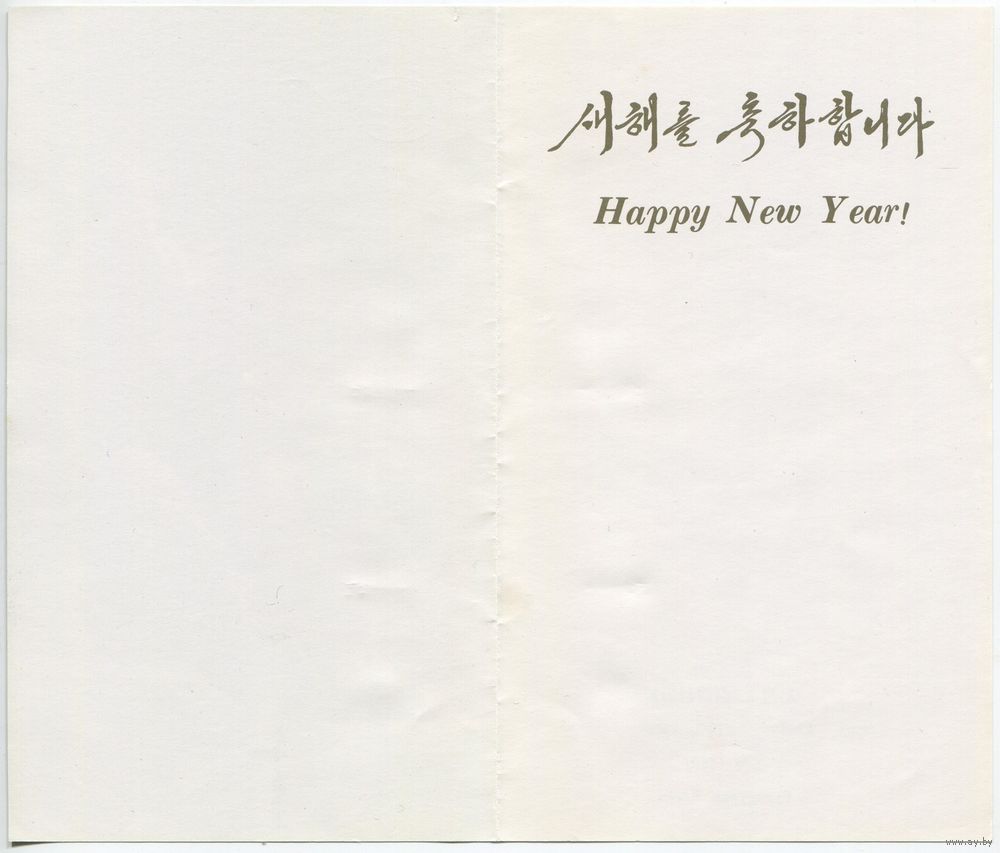 새해를 축하합니다
Happy New Year!
www.ay.by